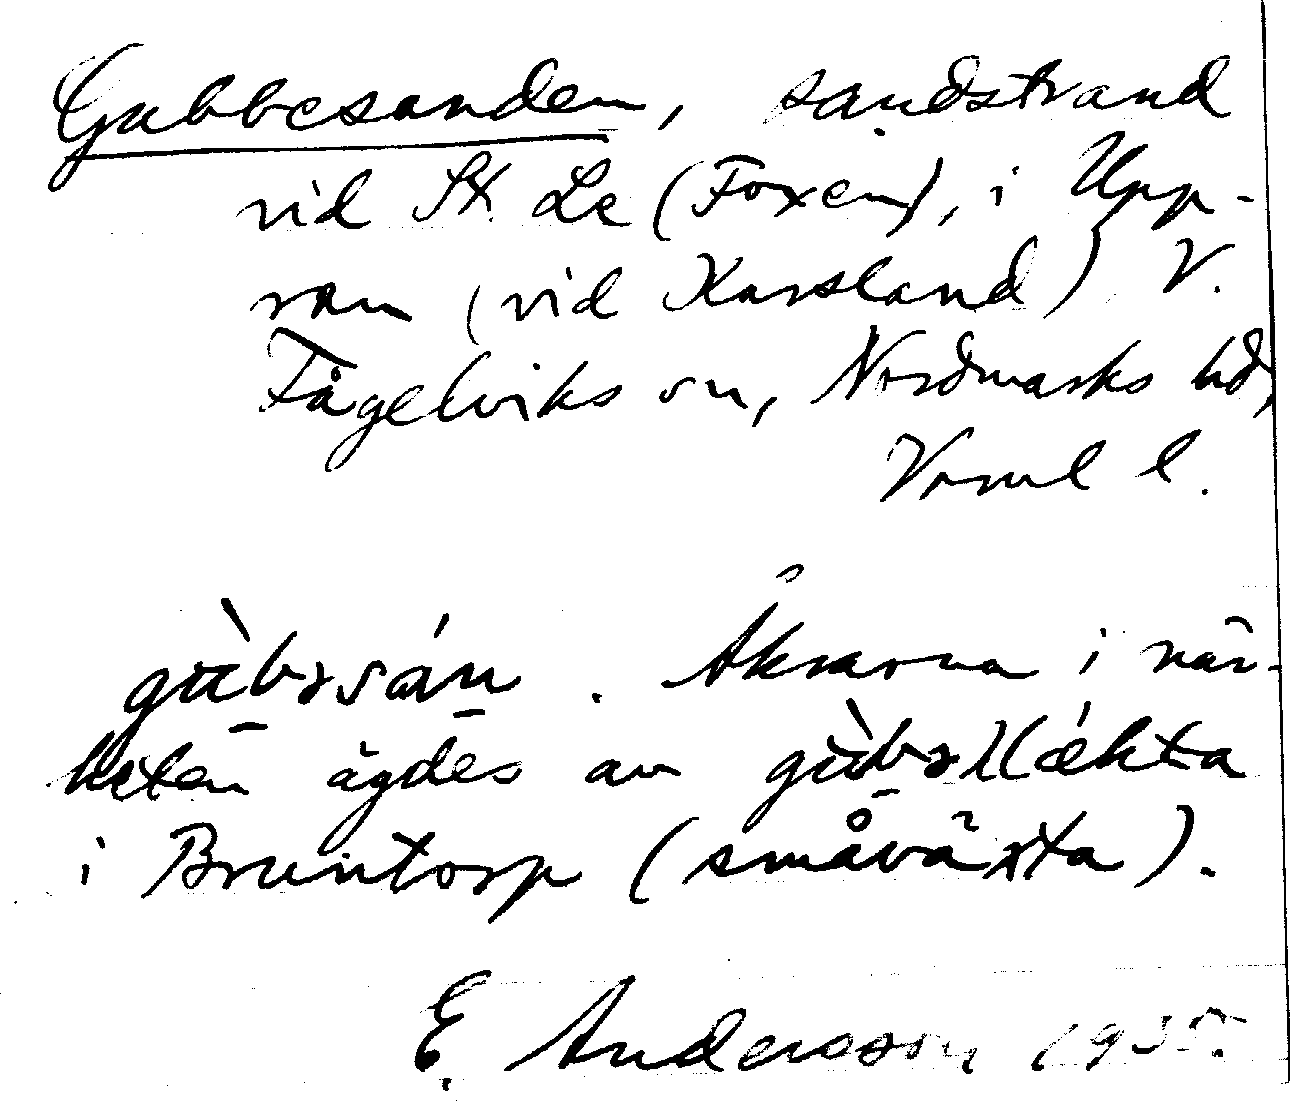 Gubbesanden, sandstrand
vid St. Le (Foxen), i Upp-
ram (vid Karsland) V.
Fågelviks sn, Nordmarks hd,
Vrml l.
gùbəsán. Åkrarna i när-
heten ägdes av gùbəslǽkta
i Bruntorp (småväxta).
E. Andersson 1935.